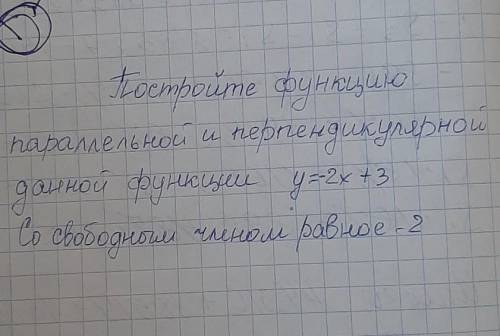 Постройте функцию
параллельной и перпендикулярной
данной функции y=-2x+3
Со свободным членом равное -2